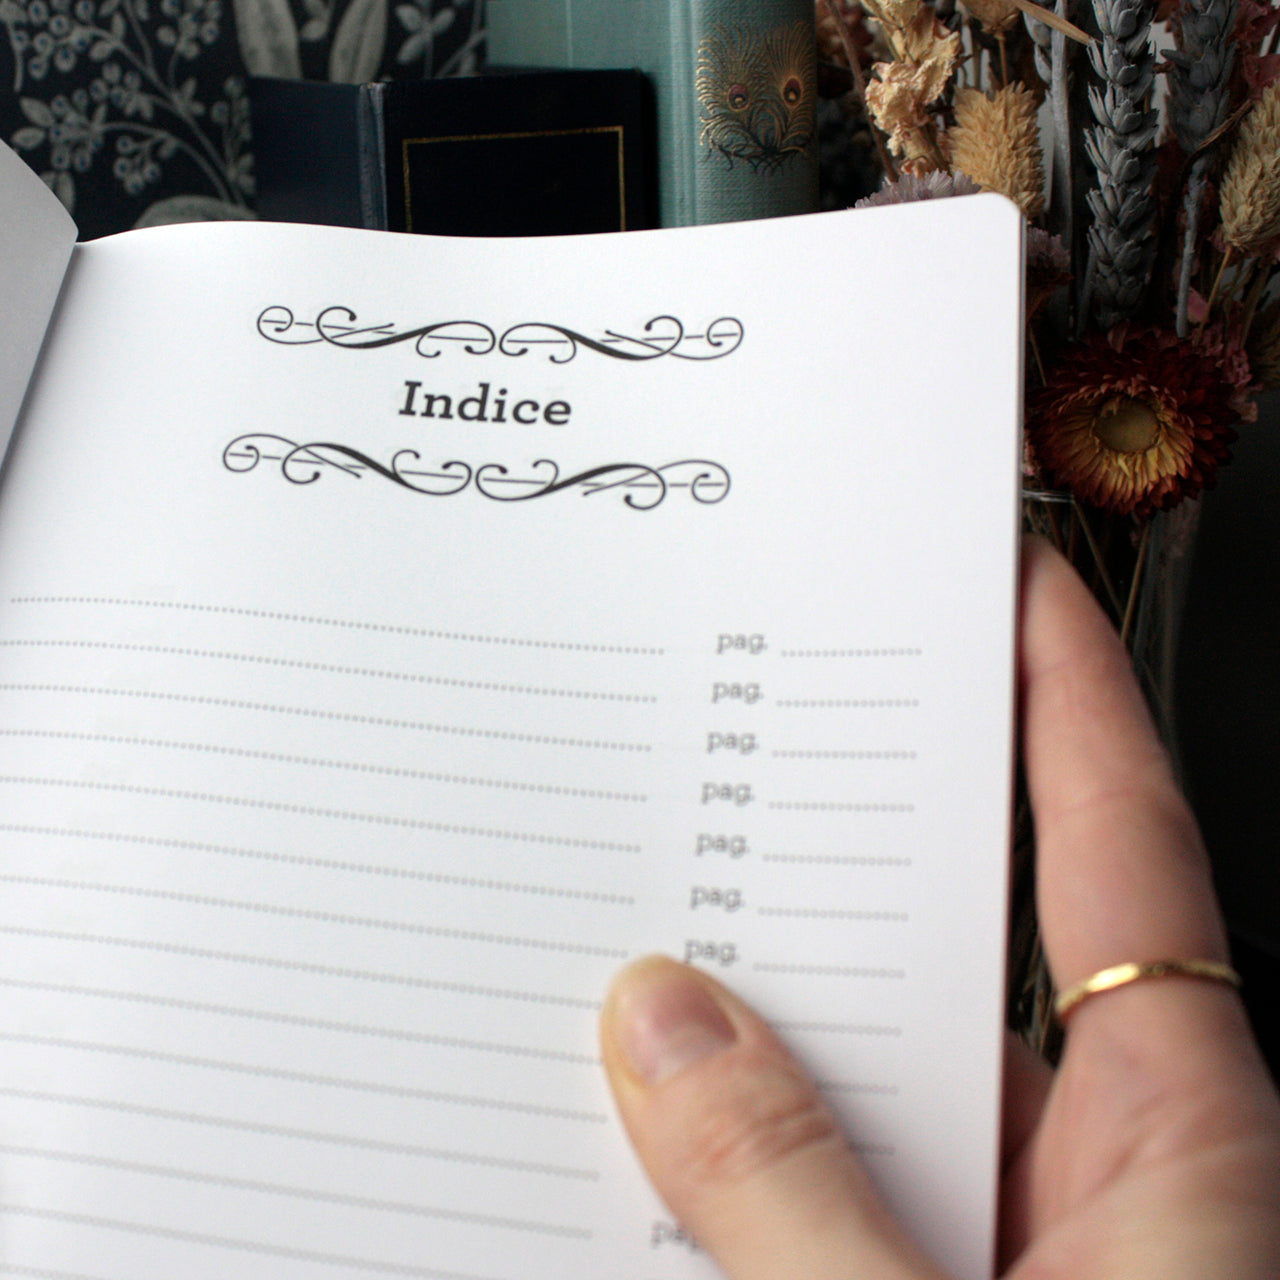 Indice
pag.
pag.
pag.
pag.
pag.
pag.
pag.
pag.